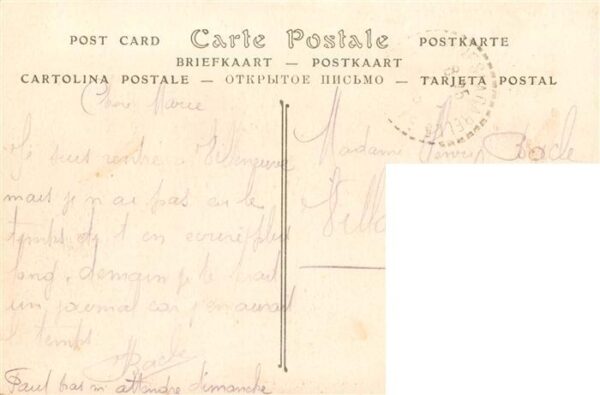 POST CARD Carte Postale POSTKARTE
BRIEFKAART — POSTKAART
CARTOLINA POSTALE — ОТКРЫТОЕ ПИСЬМО — TARJETA POSTAL
Chere Marie
Je suis rentré a Villeneuve
mais je n ai pas eu le
temps de t en ecrire plus
long, demain je te
un journal car j en aurai
le temps
Bade
Faut pas m attendre dimanche
Madame Henri Bade